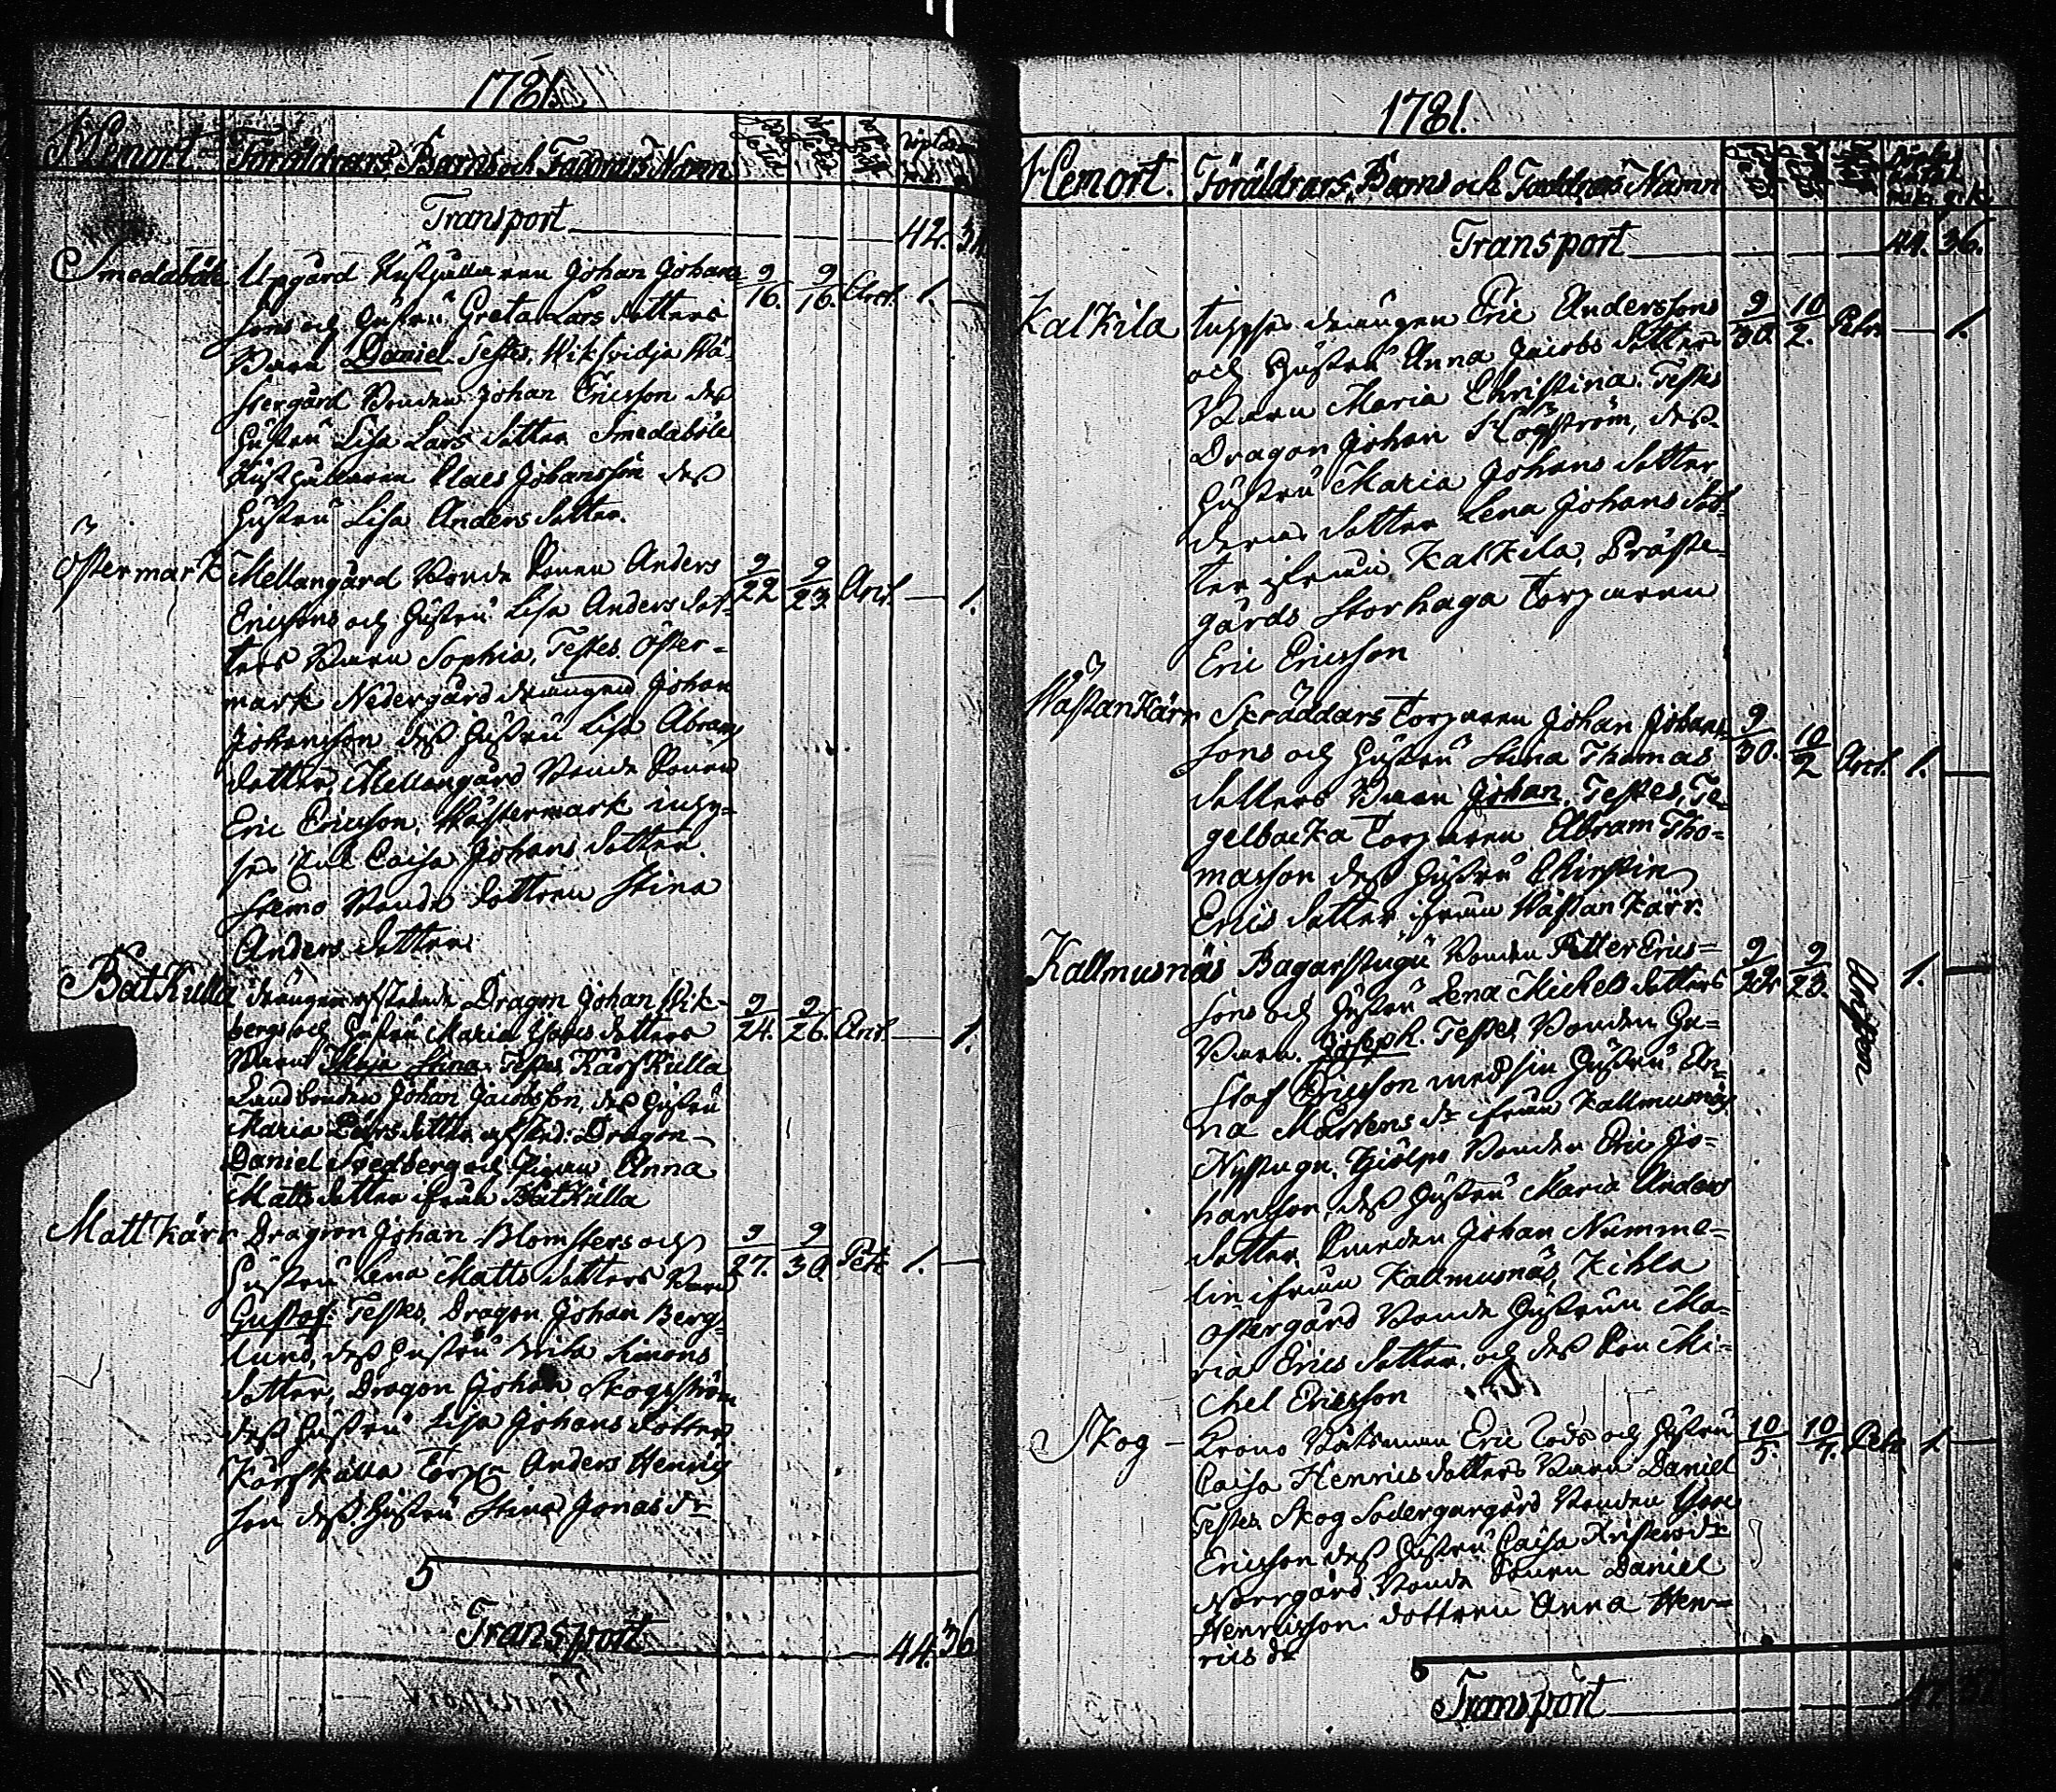 1781.
Hemort Föräldrars, Barns och Faddrars Namn
Transport 42. 34
Smedaböle Uppgård Rusthållaren Johan Johans- 9/16. 9/16. Arct. 1. —
sons och hustru Greta Lars dotters
Barn Daniel. Testes, Wiksvidja Wä-
stergård Bonden Johan Ericsson dess
hustru Lisa Lars dotter Smedaböle
Rusthållaren Claes Johansson dess
hustru Lisa Anders dotter.
Östermark Mellangård Bonde Sonen Anders 9/22 9/23. Arct. — 1.
Ericssons och hustru Lisa Anders dot-
ters Barn Sophia, Testes. Öster-
mark Nedergård drängen Johan
Johansson dess hustru Lisa Abrams
dotter, Mellangård Bonde Sonen
Eric Ericsson, Wästermark inhy-
ses Caisa Johans dotter
Bonde dottren Stina
Anders dotter
Båtkulla afskedade Dragon Johan Wik- 9/24. 9/26. Arct. — 1.
bergs och hustru Maria dotters
Barn Maja Stina. Testes Kärfkulla
Landbonden Johan Jacobsson, dess hustru
Maria Lars dotter afsked: Dragon
Daniel Svedberg och Pigan Anna
Matts dotter ifrån Båtkulla
Mattkärr Dragon Johan Blomsters och 9/27. 9/30. Petr. 1. —
hustru Lena Matts dotters Barn
Gustaf. Testes, Dragon Johan Berg-
lund, dess hustru Brita Simons
dotter, Dragon Johan Skogsström
dess hustru Lisa Johans dotter,
Kärfkulla Torp: Anders Henrics
son dess hustru Stina Jonas dr
5
Transport 44. 36
1781.
Hemort. Föräldrars, Barns och Faddrars Namn
Transport 44. 36.
Kalkila inhyses drängen Eric Anderssons 9/30 10/2. Petr. — 1.
och hustru Anna Jacobs dotters
Barn Maria Christina. Testes
Dragon Johan Skogström, dess
hustru Maria Johans dotter
dotter Lena Johans dot-
ter ifrån Kalkila, Präste-
gårds Storhaga Torparen
Eric Ericsson
Wästankärr Skräddars Torparen Johan Johans- 9/30. 10/2 Arct. 1. —
sons och hustru Stina Thomas
dotters Barn Johan. Testes, Te-
gelbacka Torparen Abram Tho-
masson dess hustru Christin
Erics dotter ifrån Wästankärr.
Kallmusnäs Bagarstugu Bonden Petter Erics- 9/22 9/23. 1. —
sons och hustru Lena Michels dotters
Barn. Joseph. Testes, Bonden Gu-
staf Ericsson med sin hustru An-
na Mårtens dr ifrån Kallmusnäs
Nystugu. Hjölps Bonden Eric Jo-
hansson, dess hustru Maria Anders
dotter Smeden Johan Numme-
lin ifrån Kallmusnäs, Kihla
Östergård Bonde hustrun Ma-
ria Erics dotter, och dess Son Mi-
chel Ericsson
Skog - Krono Båtsman Eric Tods och hustru 10/5. 10/7. Petr. 1 —
Caisa Henrics dotters Barn Daniel
Testes Skog Södergårgård Bonden
Ericsson dess hustru Caisa Kristers dr
Norrgård Bonde Sonen Daniel
Henricsson. dottren Anna Hen-
rics dr
Transport